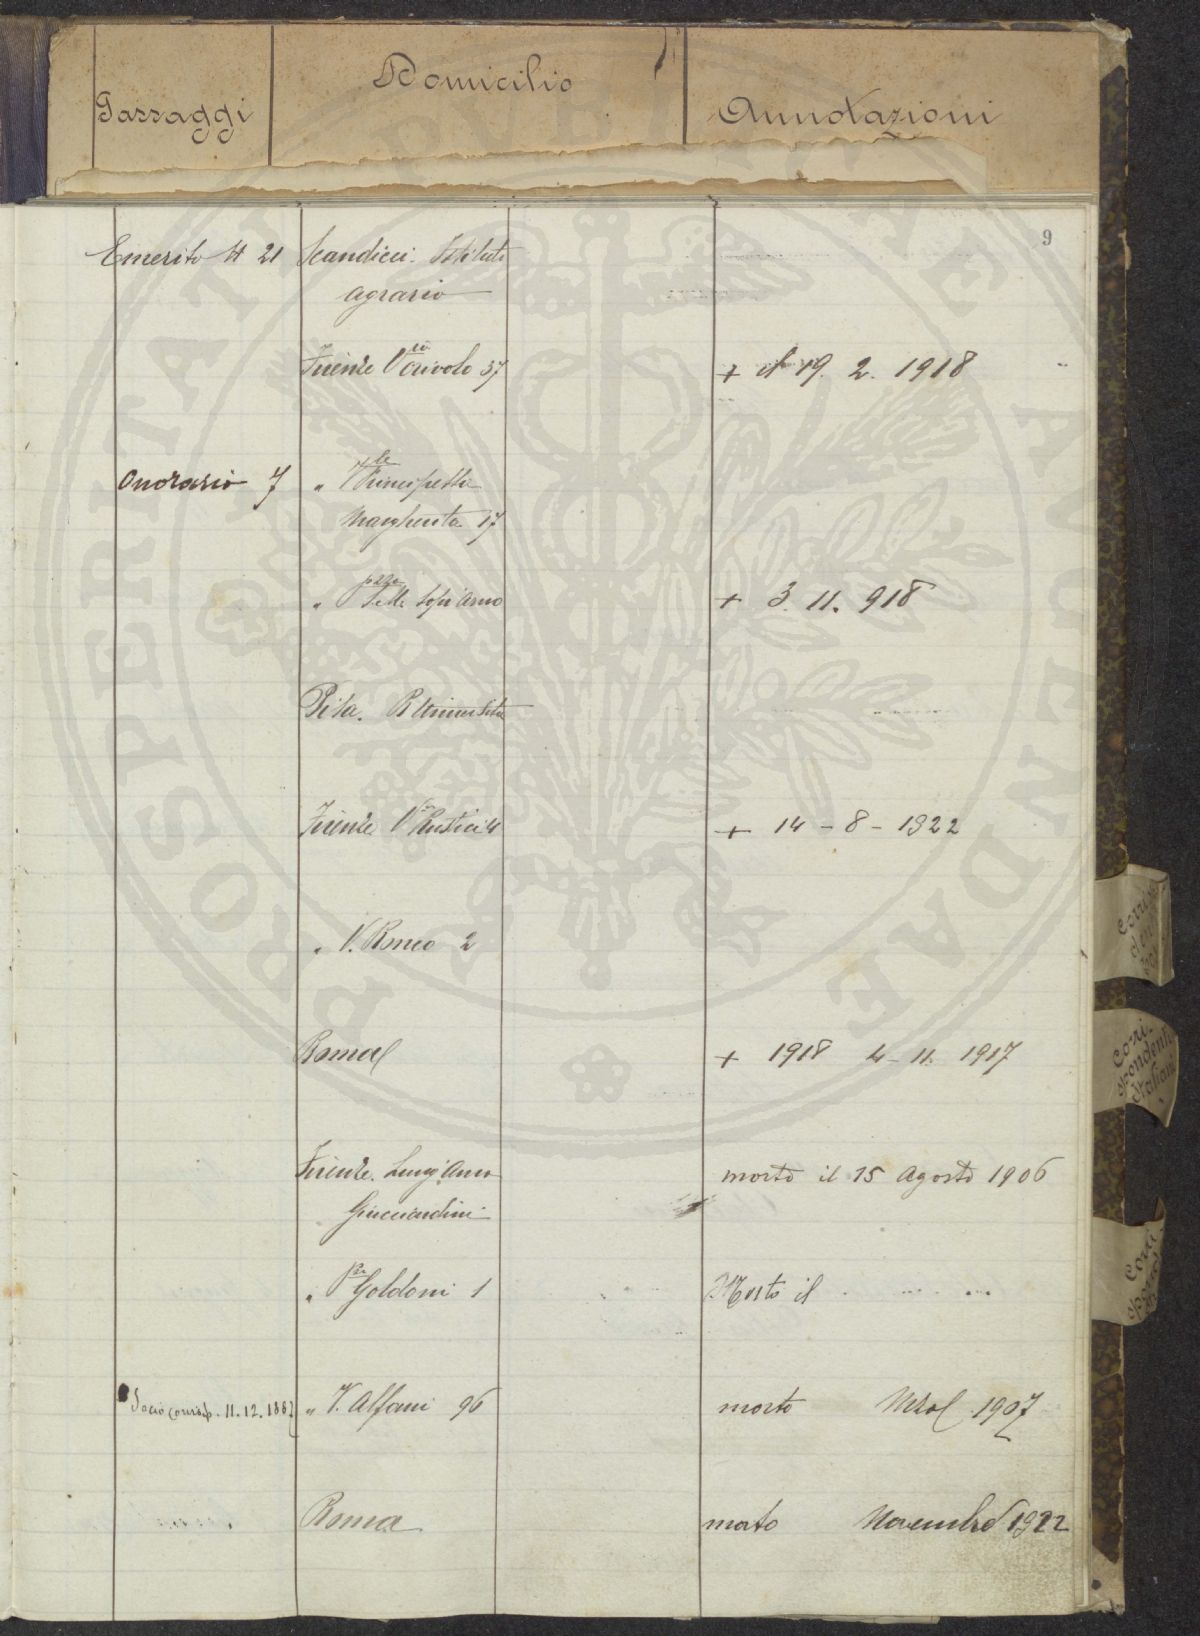 Passaggi
Domicilio
Annotazioni
9
Emerito N 21 Scandicci. Istituto
agrario
Firenze Via 37 + il 19. 2. 1918
Onorario 7 " Vle Principessa
Margherita 17
" pzza Lungarno + 3. 11. 918
Pisa. R Università
Firenze Via Rustici 4 + 14 - 8 - 1922
" V. Romeo 2
Roma + 1918 4 - 11. 1917
Firenze. Lung'Arno morto il 15 Agosto 1906
Guicciardini
" Pza Goldoni 1 Morto il
Socio corrisp. 11.12.1882 " V. Alfani 96 morto 1907
Roma morto Novembre 1922
Corri
spondenti
Italiani
PROSPERITATI PUBLICAE AUGENDAE